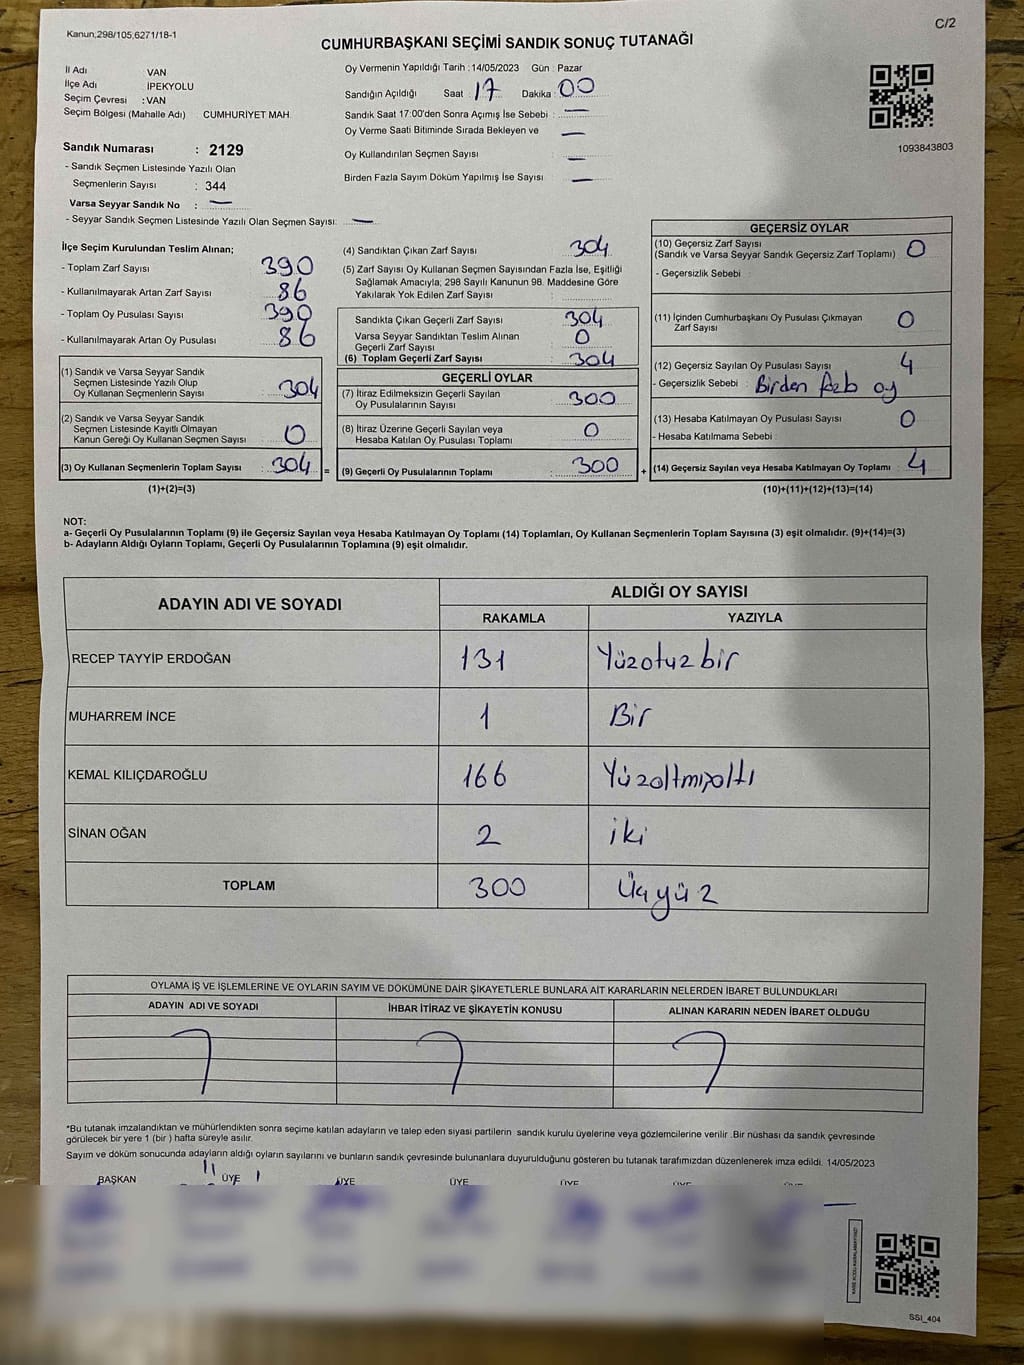 Kanun,298/105,6271/18-1
C/2
CUMHURBAŞKANI SEÇİMİ SANDIK SONUÇ TUTANAĞI
İl Adı VAN
İlçe Adı İPEKYOLU
Seçim Çevresi : VAN
Seçim Bölgesi (Mahalle Adı) CUMHURİYET MAH.
Sandık Numarası : 2129
- Sandık Seçmen Listesinde Yazılı Olan
Seçmenlerin Sayısı : 344
Varsa Seyyar Sandık No : —
- Seyyar Sandık Seçmen Listesinde Yazılı Olan Seçmen Sayısı: —
Oy Vermenin Yapıldığı Tarih :14/05/2023 Gün : Pazar
Sandığın Açıldığı Saat : 17 Dakika : 00
Sandık Saat 17:00'den Sonra Açımış İse Sebebi : —
Oy Verme Saati Bitiminde Sırada Bekleyen ve —
Oy Kullandırılan Seçmen Sayısı : —
Birden Fazla Sayım Döküm Yapılmış İse Sayısı : —
1093843803
İlçe Seçim Kurulundan Teslim Alınan;
- Toplam Zarf Sayısı : 390
- Kullanılmayarak Artan Zarf Sayısı : 86
- Toplam Oy Pusulası Sayısı : 390
- Kullanılmayarak Artan Oy Pusulası : 86
(1) Sandık ve Varsa Seyyar Sandık
Seçmen Listesinde Yazılı Olup
Oy Kullanan Seçmenlerin Sayısı : 304
(2) Sandık ve Varsa Seyyar Sandık
Seçmen Listesinde Kayıtlı Olmayan
Kanun Gereği Oy Kullanan Seçmen Sayısı : 0
(3) Oy Kullanan Seçmenlerin Toplam Sayısı : 304 =
(1)+(2)=(3)
(4) Sandıktan Çıkan Zarf Sayısı : 304
(5) Zarf Sayısı Oy Kullanan Seçmen Sayısından Fazla İse, Eşitliği
Sağlamak Amacıyla; 298 Sayılı Kanunun 98. Maddesine Göre
Yakılarak Yok Edilen Zarf Sayısı :
Sandıkta Çıkan Geçerli Zarf Sayısı : 304
Varsa Seyyar Sandıktan Teslim Alınan
Geçerli Zarf Sayısı : 0
(6) Toplam Geçerli Zarf Sayısı : 304
GEÇERLİ OYLAR
(7) İtiraz Edilmeksizin Geçerli Sayılan
Oy Pusulalarının Sayısı : 300
(8) İtiraz Üzerine Geçerli Sayılan veya
Hesaba Katılan Oy Pusulası Toplamı : 0
(9) Geçerli Oy Pusulalarının Toplamı : 300 +
GEÇERSİZ OYLAR
(10) Geçersiz Zarf Sayısı
(Sandık ve Varsa Seyyar Sandık Geçersiz Zarf Toplamı) : 0
- Geçersizlik Sebebi :
(11) İçinden Cumhurbaşkanı Oy Pusulası Çıkmayan
Zarf Sayısı : 0
(12) Geçersiz Sayılan Oy Pusulası Sayısı : 4
- Geçersizlik Sebebi : Birden fazla oy
(13) Hesaba Katılmayan Oy Pusulası Sayısı : 0
- Hesaba Katılmama Sebebi :
(14) Geçersiz Sayılan veya Hesaba Katılmayan Oy Toplamı : 4
(10)+(11)+(12)+(13)=(14)
NOT:
a- Geçerli Oy Pusulalarının Toplamı (9) ile Geçersiz Sayılan veya Hesaba Katılmayan Oy Toplamı (14) Toplamları, Oy Kullanan Seçmenlerin Toplam Sayısına (3) eşit olmalıdır. (9)+(14)=(3)
b- Adayların Aldığı Oyların Toplamı, Geçerli Oy Pusulalarının Toplamına (9) eşit olmalıdır.
ADAYIN ADI VE SOYADI ALDIĞI OY SAYISI
RAKAMLA YAZIYLA
RECEP TAYYİP ERDOĞAN 131 Yüzotuzbir
MUHARREM İNCE 1 Bir
KEMAL KILIÇDAROĞLU 166 Yüzaltmışaltı
SİNAN OĞAN 2 iki
TOPLAM 300 Üçyüz
OYLAMA İŞ VE İŞLEMLERİNE VE OYLARIN SAYIM VE DÖKÜMÜNE DAİR ŞİKAYETLERLE BUNLARA AİT KARARLARIN NELERDEN İBARET BULUNDUKLARI
ADAYIN ADI VE SOYADI İHBAR İTİRAZ VE ŞİKAYETİN KONUSU ALINAN KARARIN NEDEN İBARET OLDUĞU
*Bu tutanak imzalandıktan ve mühürlendikten sonra seçime katılan adayların ve talep eden siyasi partilerin sandık kurulu üyelerine veya gözlemcilerine verilir .Bir nüshası da sandık çevresinde
görülecek bir yere 1 (bir ) hafta süreyle asılır.
Sayım ve döküm sonucunda adayların aldığı oyların sayılarını ve bunların sandık çevresinde bulunanlara duyurulduğunu gösteren bu tutanak tarafımızdan düzenlenerek imza edildi. 14/05/2023
BAŞKAN ÜYE ÜYE ÜYE ÜYE ÜYE ÜYE
SSI_404